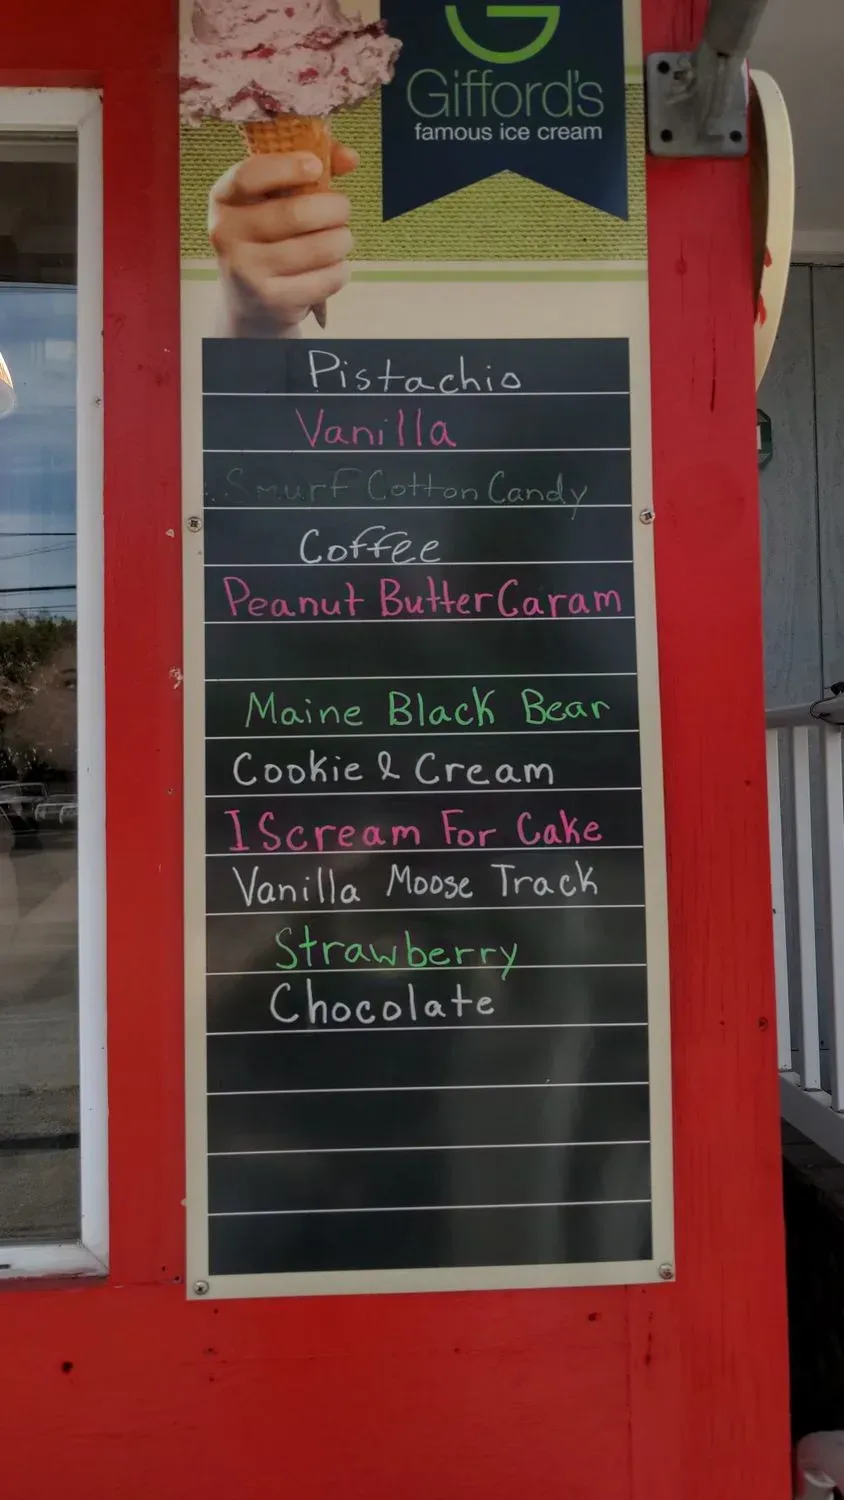 Gifford's
famous ice cream
Pistachio
Vanilla
Smurf Cotton Candy
Coffee
Peanut Butter Caram
Maine Black Bear
Cookie & Cream
I Scream For Cake
Vanilla Moose Track
Strawberry
Chocolate